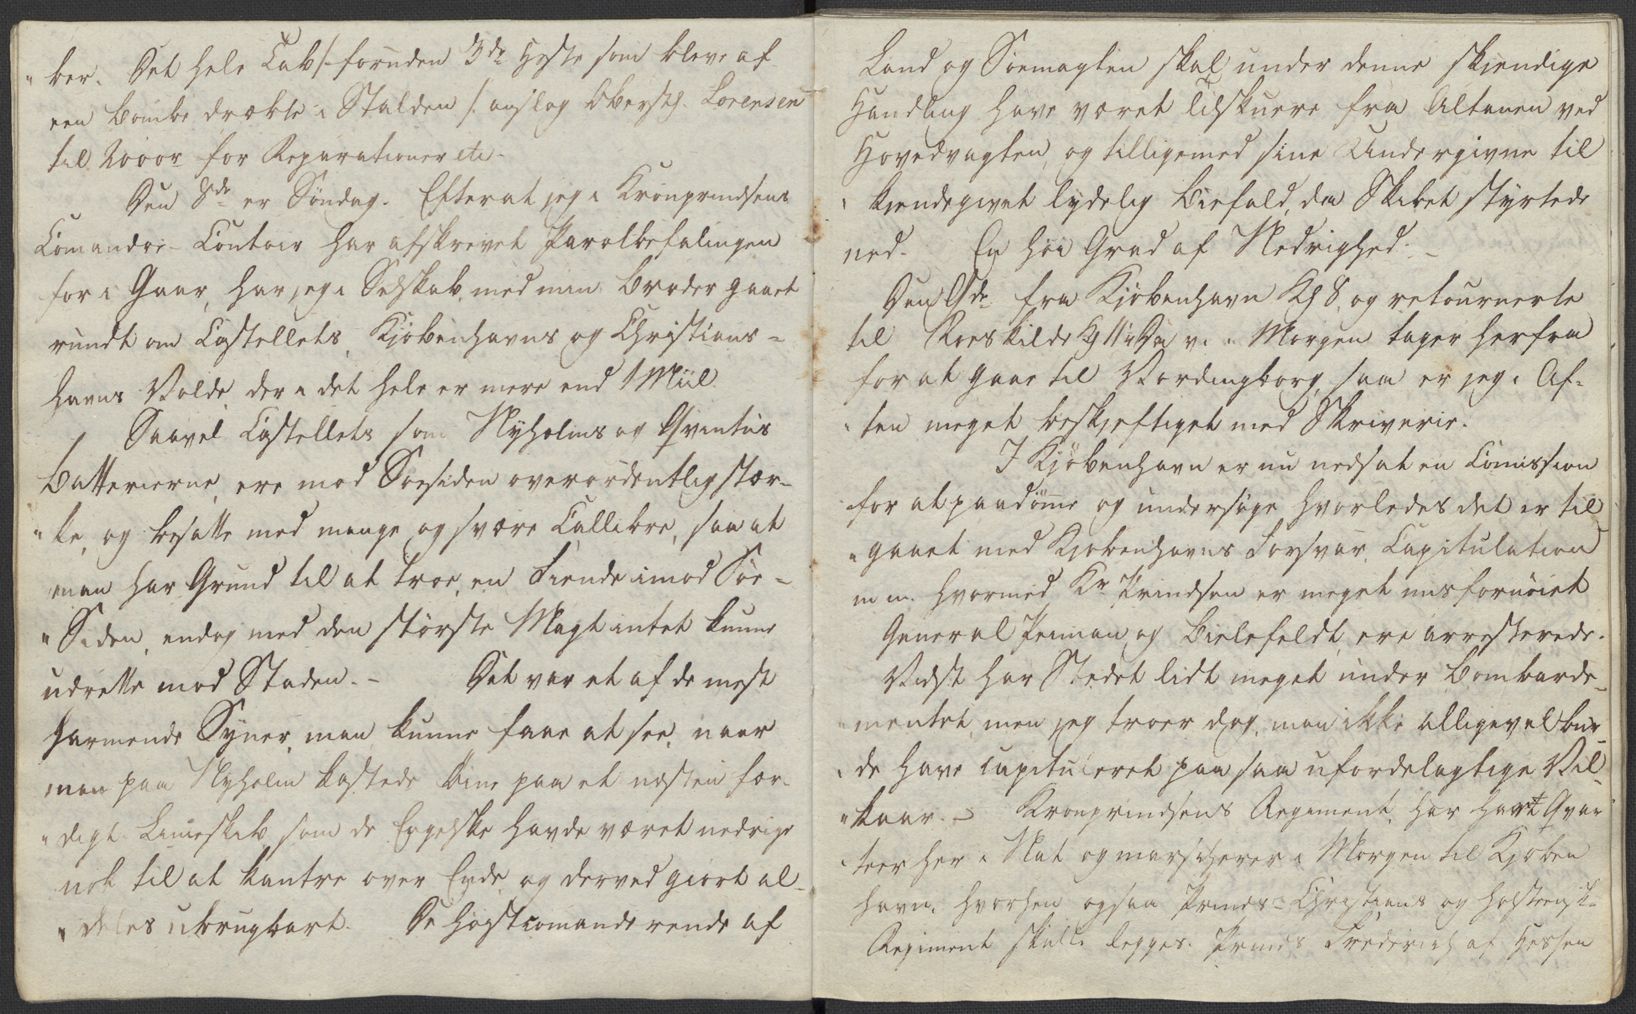 "ber. Det hele Tab /: foruden 3de Heste som bleve af
een Bombe dræbte i Stalden :/ anslog Oberstl. Lorensen
til 2000r for Reparationer etc.
Den 8de er Søndag. Efterat jeg i Kronprindsens
Comandoe-Contoir har afskrevet Parolbefalingen
for i Gaar, har jeg i Selskab med min Broder gaaet
rundt om Castellets, Kjøbenhavns og Christians-
havns Volde, der i det hele er mere end 1 Miil.
Saavel Castellets som Nyholms og Qvintus
Batterierne, ere mod Søesiden overordentlig stær-
"ke, og besatte med mange og svære Callibre, saa at
man har Grund til at troe, en Fiende imod Søe-
"Siden, endog med den største Magt intet kunne
udrette mod Staden.- Det var et af de mest
harmende Syner, man kunne faae at see, naar
man paa Nyholm kastede Øine paa et næsten fær-
"digt Linieskib, som de Engelske havde været nedrige
nok til at kantre over Ende, og derved giort al-
"deles ubrugbart. De høystcomanderende af
Land og Søemagten skal under denne skjendige
Handling have været tilskuere fra Altanen ved
Hovedvagten, og tilligemed sine Undergivne til
"kjendegivet lydelig Biefald, da Skibet styrtede
ned. En høi Grad af Nedrighed.-
Den 9de fra Kjøbenhavn Kl 8, og retournerte
til Roeskilde Kl 11. Da vi i Morgen tager herfra
for at gaae til Vordingborg, saa er jeg i Af-
"ten meget beskjeftiget med Skriverie.
I Kjøbenhavn er nu nedsat en Comission
for at paadøme og undersøge hvorledes det er til
"gaaet med Kjøbenhavns Forsvar, Capitulation
m.m. hvormed Kr Prindsen er meget misfornøiet
General Peiman og Bielefeldt, ere arresterede.
Vidst har Stedet lidt meget under Bombarde-
"mentet, men jeg troer dog, man ikke alligevel bur-
"de have capituleret paa saa ufordelagtige Vil-
"kaar.- Kronprindsens Regiment, har havt Qvar
"teer her i Nat og marscherer i Morgen til Kjøben
havn, hvorhen ogsaa Prinds-Christians og Holsteensk-
Regiment skulle legges. Prinds Frederich af Hessen